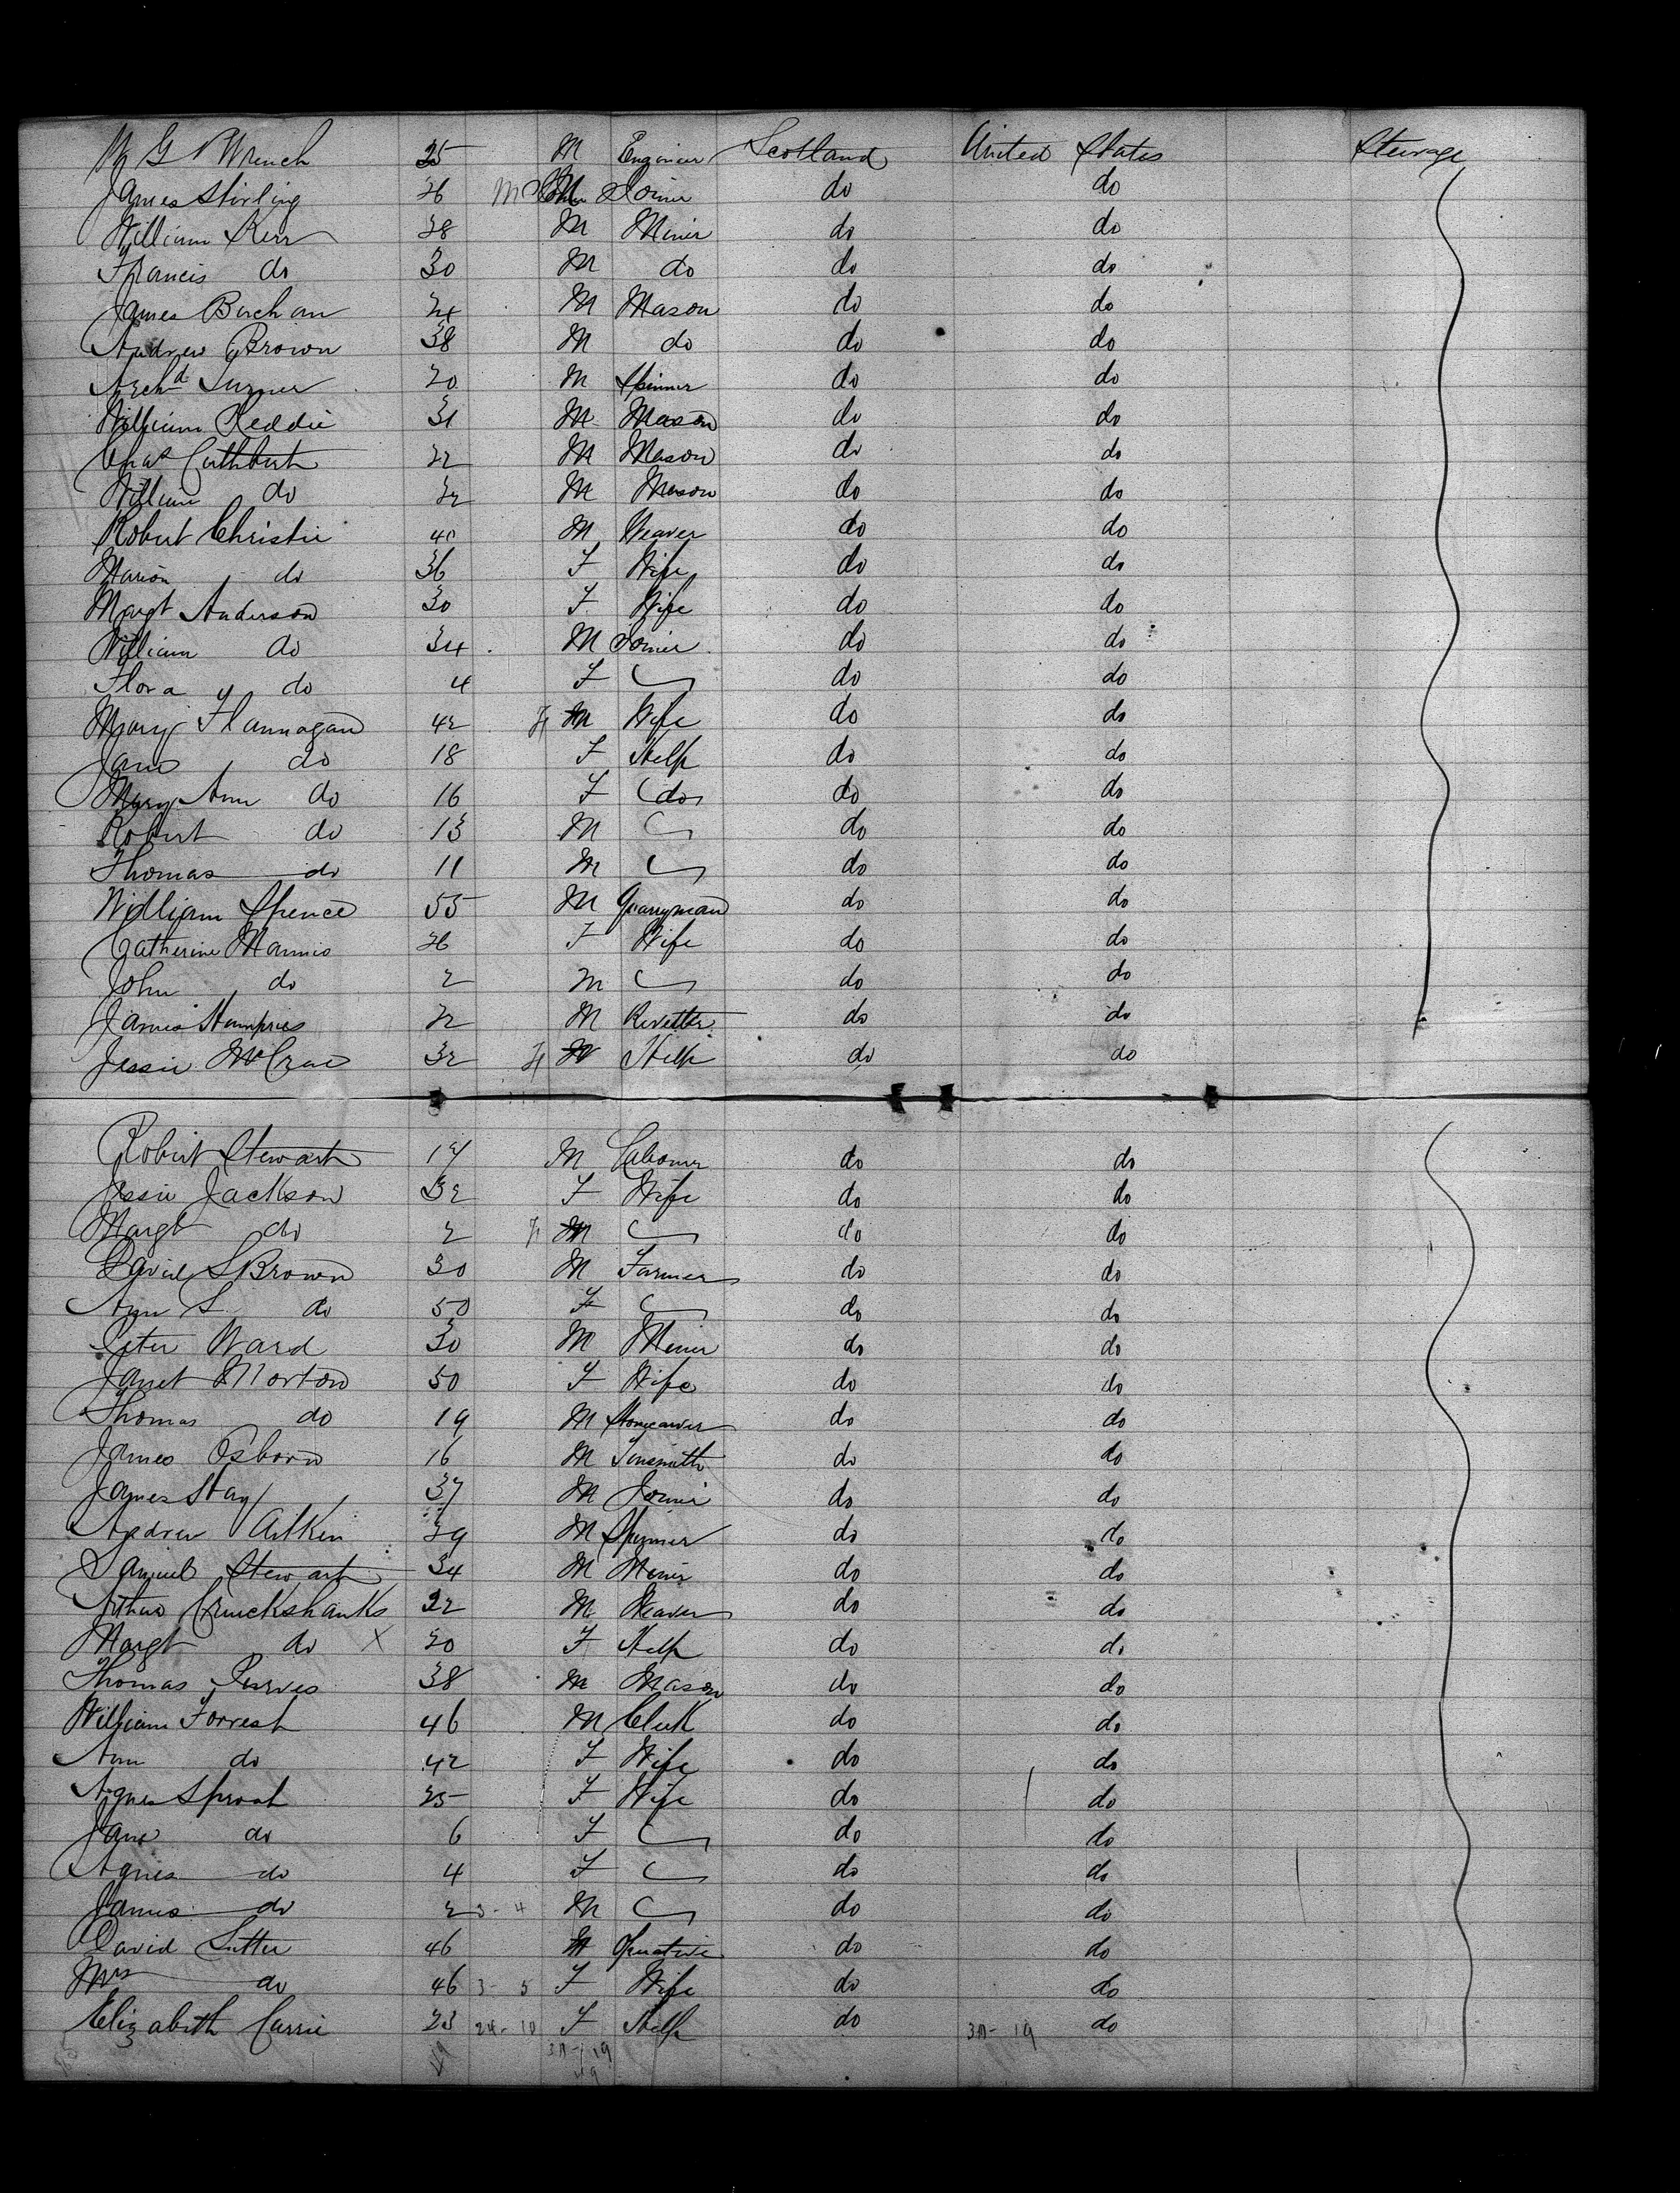 W G Wrench 25 M Engineer Scotland United States Steerage
James Stirling 26 M Joiner do do
William Kerr 28 M Miner do do
Francis do 30 M do do do
James Buchan 24 M Mason do do
Andrew Brown 38 M do do do
Archd Turner 20 M Spinner do do
William Reddie 31 M Mason do do
Chas Cuthbert 22 M Mason do do
William do 32 M Mason do do
Robert Christie 40 M Weaver do do
Marion do 36 F Wife do do
Margt Anderson 30 F Wife do do
William do 34 M Joiner do do
Flora y do 4 F do do
Mary Flannagan 42 F M Wife do do
Jane do 18 F Help do do
Mary Ann do 16 F do do do
Robert do 13 M do do
Thomas do 11 M do do
William Spence 55 M Quarryman do do
Catherine Mannis 26 F Wife do do
John do 2 M do do
James Humphries 22 M Rivetter do do
Jessie McCrae 32 F M Help do do
Robert Stewart 17 M Labourer do do
Jessie Jackson 32 F Wife do do
Margt do 2 F M do do
David S Brown 30 M Farmer do do
Ann S do 50 F do do
Peter Ward 30 M Miner do do
Janet Morton 50 F Wife do do
Thomas do 19 M Stonecarver do do
James Osborn 16 M Tinsmith do do
James Hay 37 M Joiner do do
Andrew Aitken 29 M Spinner do do
Samuel Stewart 34 M Miner do do
Arthur Cruickshanks 22 M Weaver do do
Margt do X 20 F Help do do
Thomas Purves 38 M Mason do do
William Forrest 46 M Clerk do do
Ann do 42 F Wife do do
Agnes Sproat 25 F Wife do do
Jane do 6 F do do
Agnes do 4 F do do
James do 2 3-4 M do do
David Sutter 46 M Operative do do
Mrs do 46 3-5 F Wife do do
Elizabeth Currie 23 24-10 F Help do 30-19 do
49 30-19
49